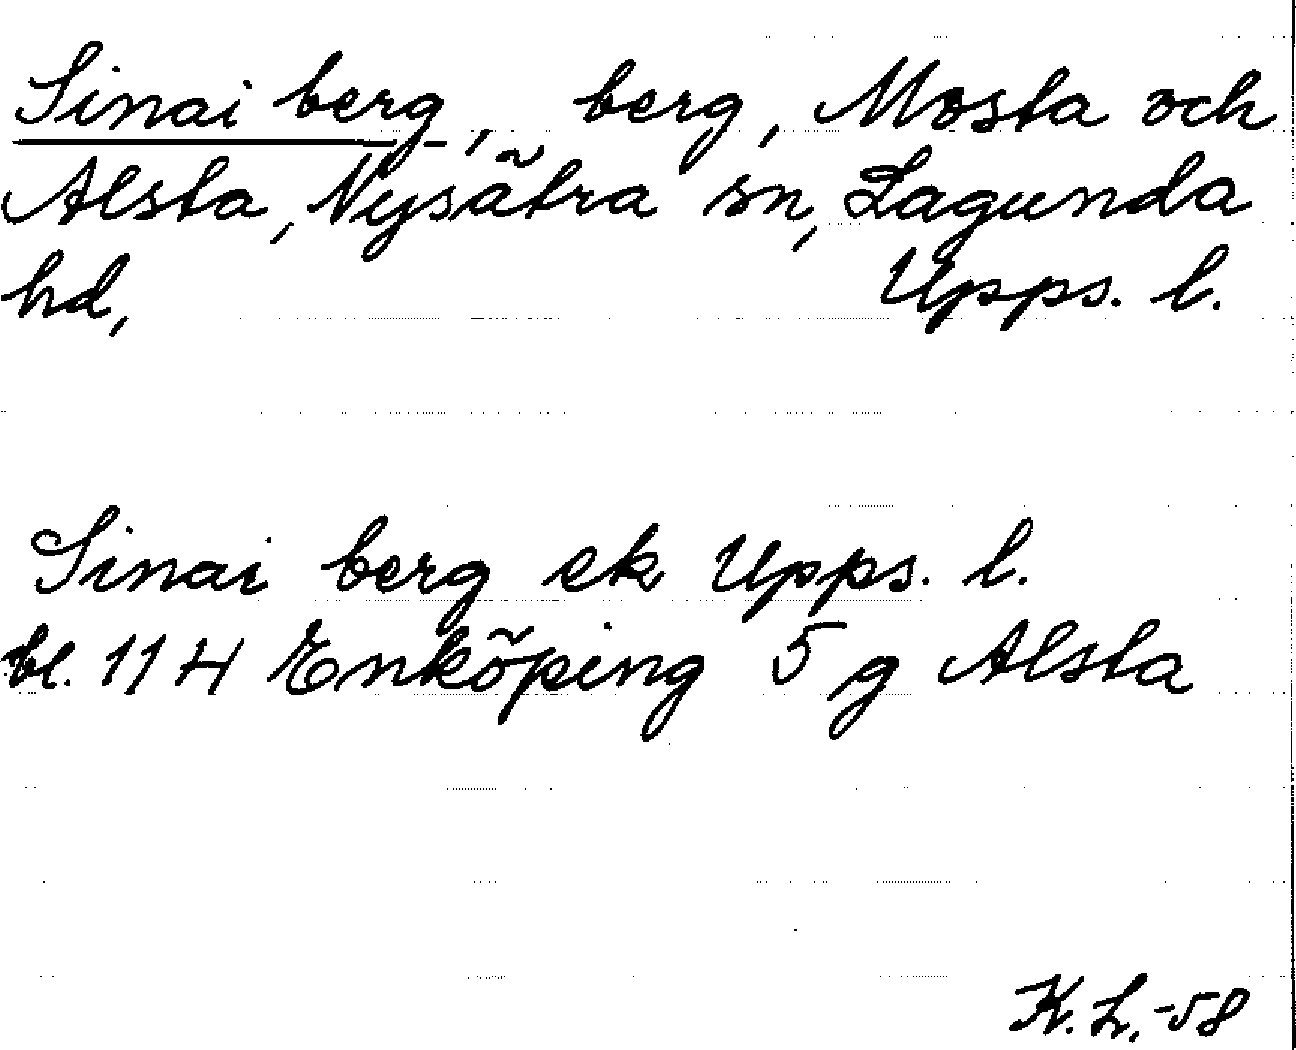 Sinai berg, berg, Mosta och
Alsta, Nysätra sn, Lagunda
hd, Upps. l.
Sinai berg ek Upps. l.
bl. 114 Enköping 5 g Alsta
K. L. -58